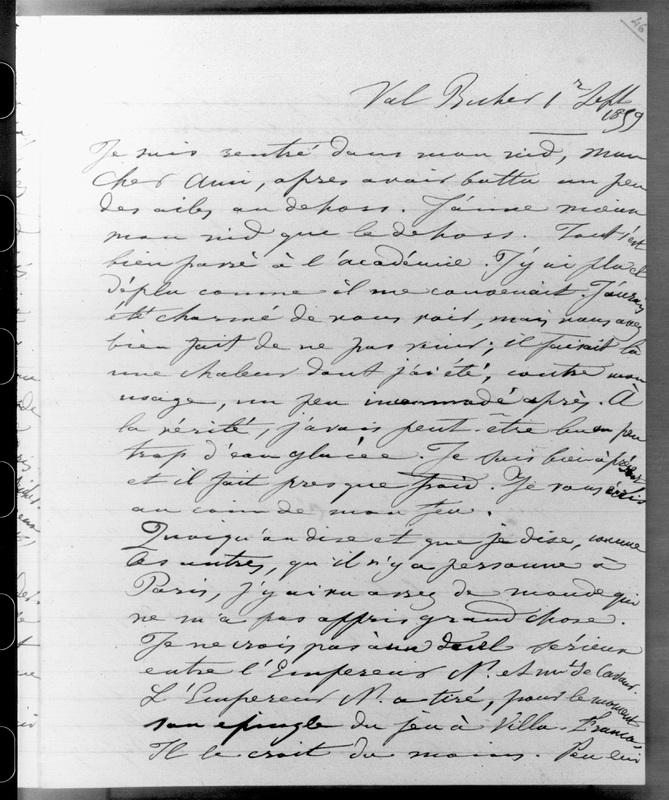 46
Val Richer 1r Sept
1859
Je suis rentré dans mon nid, mon
cher ami, après avoir battu un peu
des ailes au dehors. J'aime mieux
mon nid que le dehors. Tout s'est
bien passé à l'académie. J'y ai plu et
déplu comme il me convenait. J'aurais
été charmé de vous voir, mais vous avez
bien fait de ne pas venir; il faisait là
une chaleur dont j'ai été, contre mon
usage, un peu incommodé après. À
la vérité, j'avais peut-être bu un peu
trop d'eau glacée. Je suis bien à présent
et il fait presque froid. Je vous écris
au coin de mon feu.
Quoiqu'on dise et que je dise, comme
les autres, qu'il n'y a personne à
Paris, j'y ai vu assez de monde qui
ne m'a pas appris grand chose.
Je ne crois pas à un duel sérieux
entre l'Empereur N. et mr de Cavour.
L'Empereur N. a tiré, pour le moment
son épingle du jeu à Villa-Franca.
Il le croit du moins. Peu lui